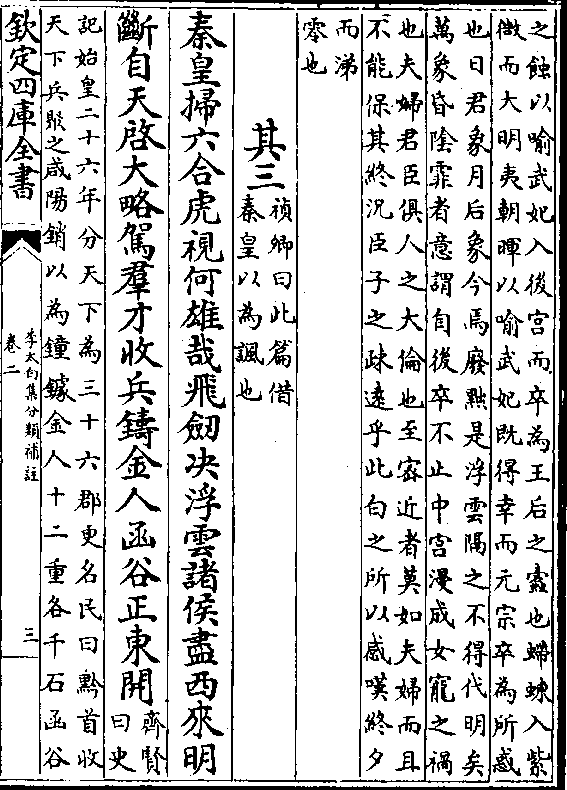 之蝕以喻武妃入後宫而卒為王后之蠧也蝃蝀入紫
微而大明夷朝暉以喻武妃既得幸而元宗卒為所惑
也日君象月后象今焉廢黜是浮雲隔之不得代明矣
萬象昏陰霏者意謂自後卒不止中宫漫成女寵之禍
也夫婦君臣俱人之大倫也至宻近者莫如夫婦而且
不能保其終况臣子之疎遠乎此白之所以感嘆終夕
而涕
零也
其三
禎卿曰此篇借
秦皇以為諷也
秦皇掃六合虎視何雄哉飛劒决浮雲諸侯盡西來明
斷自天啓大略駕羣才收兵鑄金人函谷正東開
齊賢
曰史
記始皇二十六年分天下為三十六郡更名民曰黔首收
天下兵聚之咸陽銷以為鐘鐻金人十二重各千石函谷
欽定四庫全書
李太白集分類補註
卷二
三